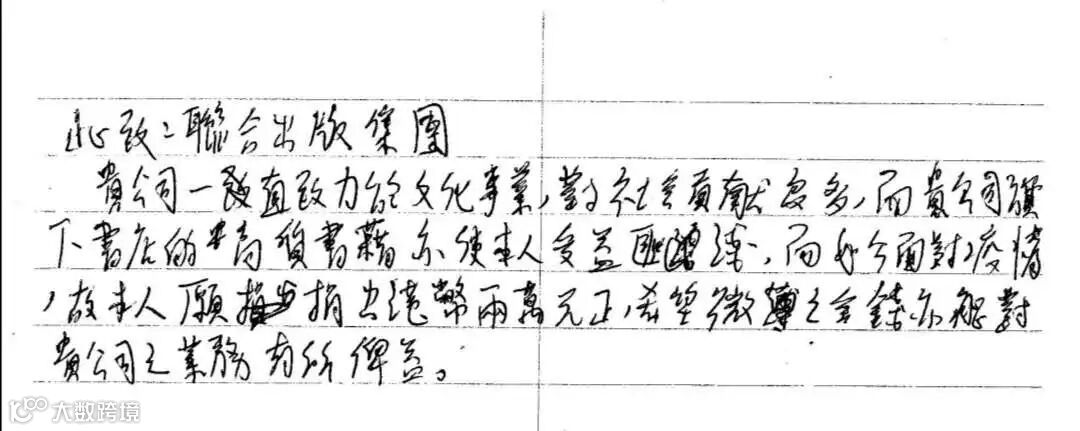 此致：聯合出版集團
貴公司一直致力於文化事業，對社會貢献良多，而貴公司旗
下書店的出高質書藉亦使本人受益匪淺，而如今面對疫情
，故本人願捐出港幣兩萬元正，希望微薄之金錢亦能對
貴公司之業務有所俾益。
大数跨境